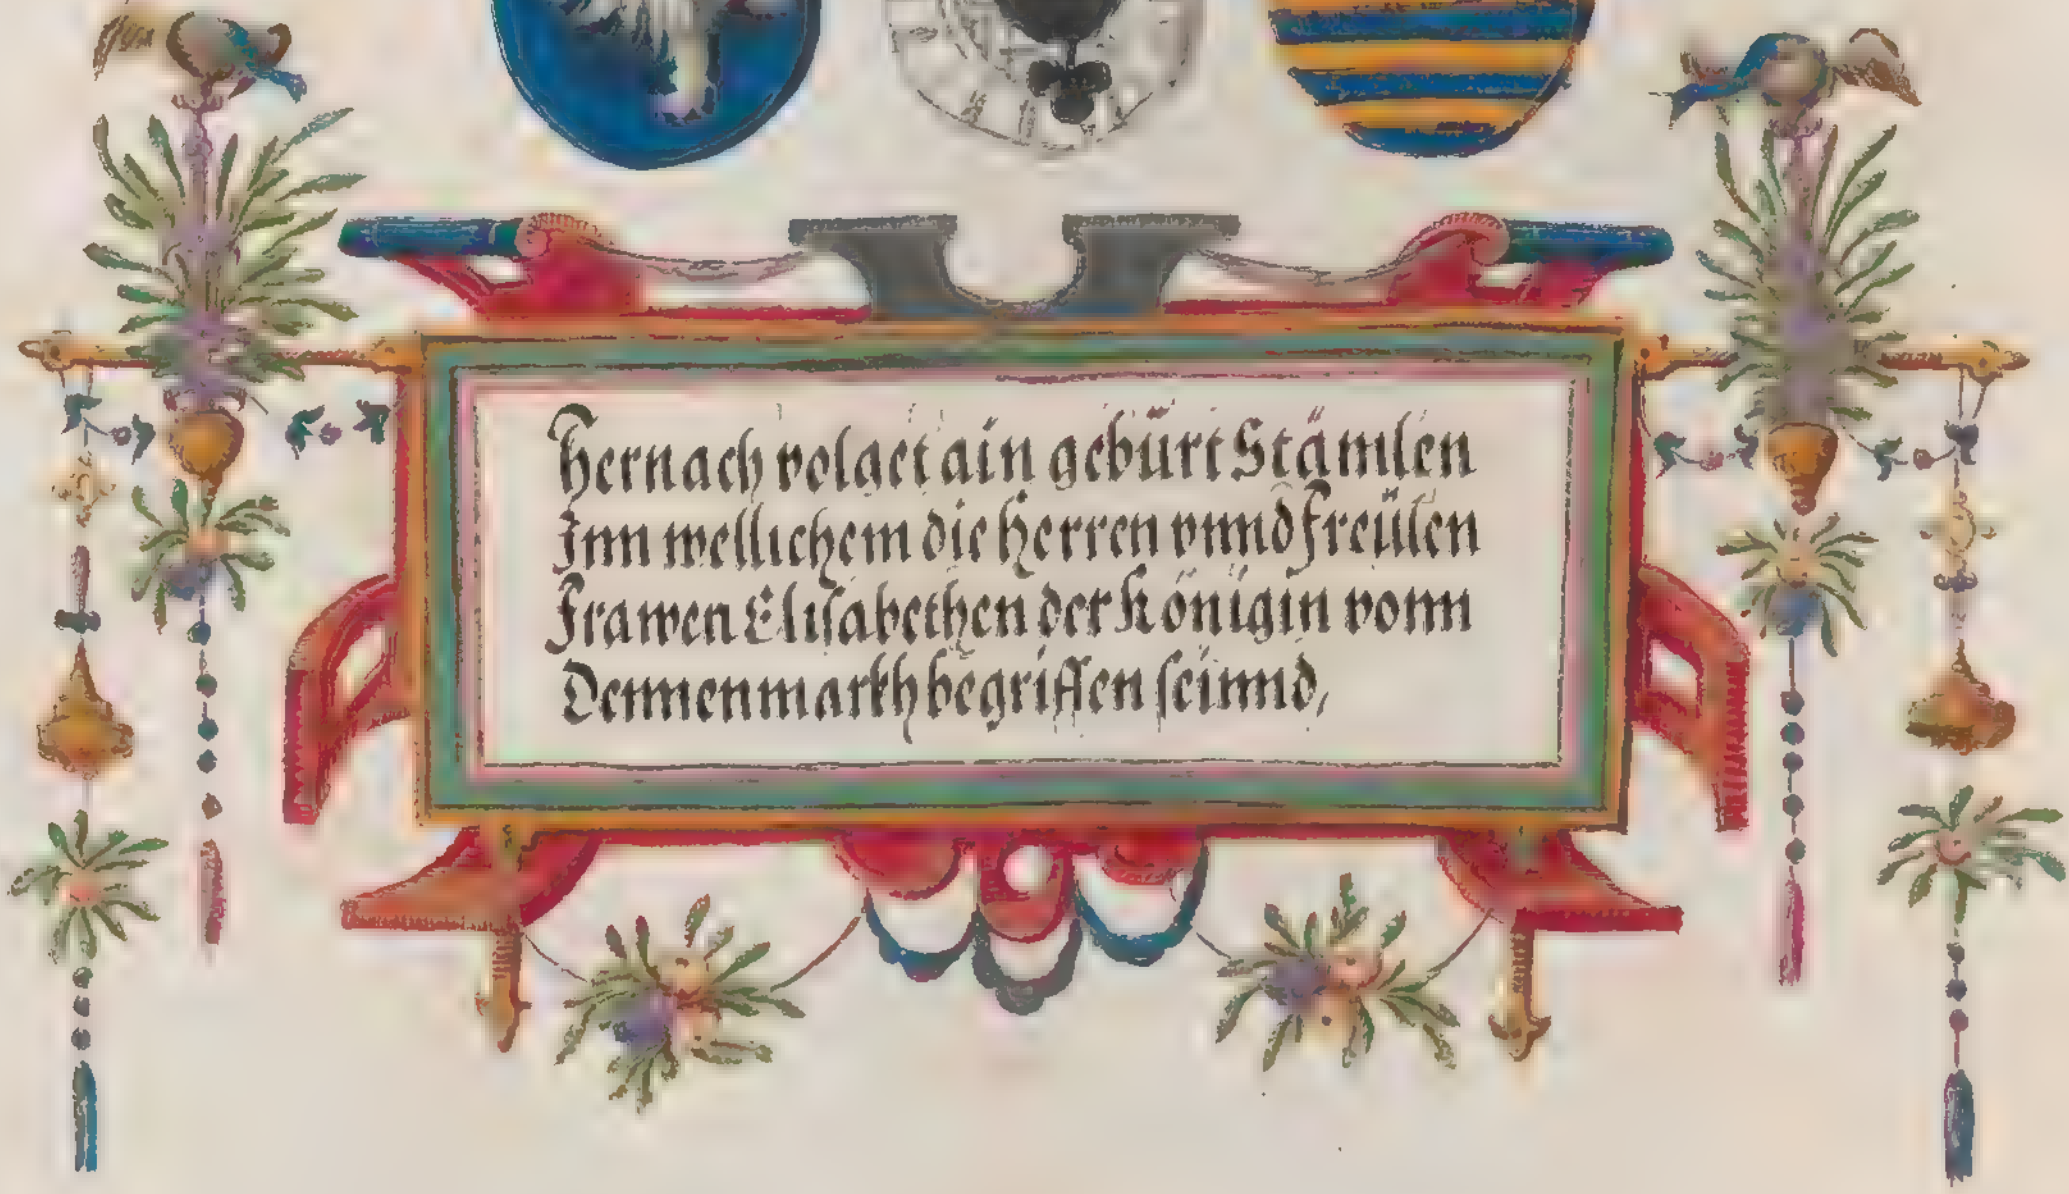 Hernach volget ain gebürt Stämlen
Inn wellichem die Herren vnnd Freülen
Frawen Elisabethen der Königin vonn
Dennenmarkh begriffen seinnd,